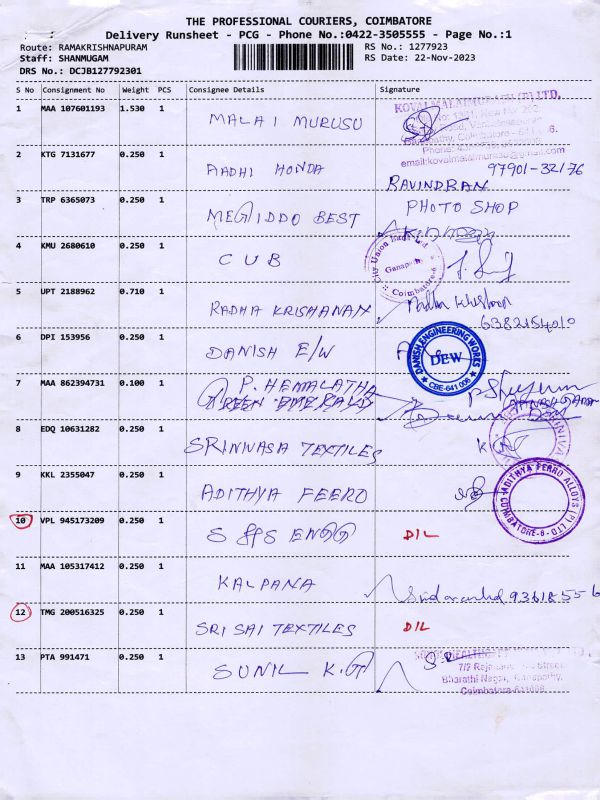 THE PROFESSIONAL COURIERS, COIMBATORE
Delivery Runsheet - PCG - Phone No.:0422-3505555 - Page No.:1
Route: RAMAKRISHNAPURAM RS No.: 1277923
Staff: SHANMUGAM RS Date: 22-Nov-2023
DRS No.: DCJB127792301
S No Consignment No Weight PCS Consignee Details Signature
1 MAA 107601193 1.530 1 MALAI MURUSU
2 KTG 7131677 0.250 1 AADHI HONDA 97901-32176
RAVINDRAN
3 TRP 6365073 0.250 1 MEGIDDO BEST PHOTO SHOP
4 KMU 2680610 0.250 1 CUB City Union Bank Ltd. Ganapathy Coimbatore-6
5 UPT 2188962 0.710 1 RADHA KRISHANAN
6382154010
6 DPI 153956 0.250 1 DANISH E/W DANISH ENGINEERING WORKS DEW CBE-641 006
7 MAA 862394731 0.100 1 P. HEMALATHA
GREEN EMERALD
8 EDQ 10631282 0.250 1 SRINIVASA TEXTILES
9 KKL 2355047 0.250 1 ADITHYA FEERO ADITHYA FERRO ALLOYS (P) LTD COIMBATORE-6
10 VPL 945173209 0.250 1 S & S ENGG D/L
11 MAA 105317412 0.250 1 KALPANA
12 TMG 200516325 0.250 1 SRI SAI TEXTILES D/L
13 PTA 991471 0.250 1 SUNIL K.G
Bharathi Nagar, Ganapathy,
Coimbatore-641006.